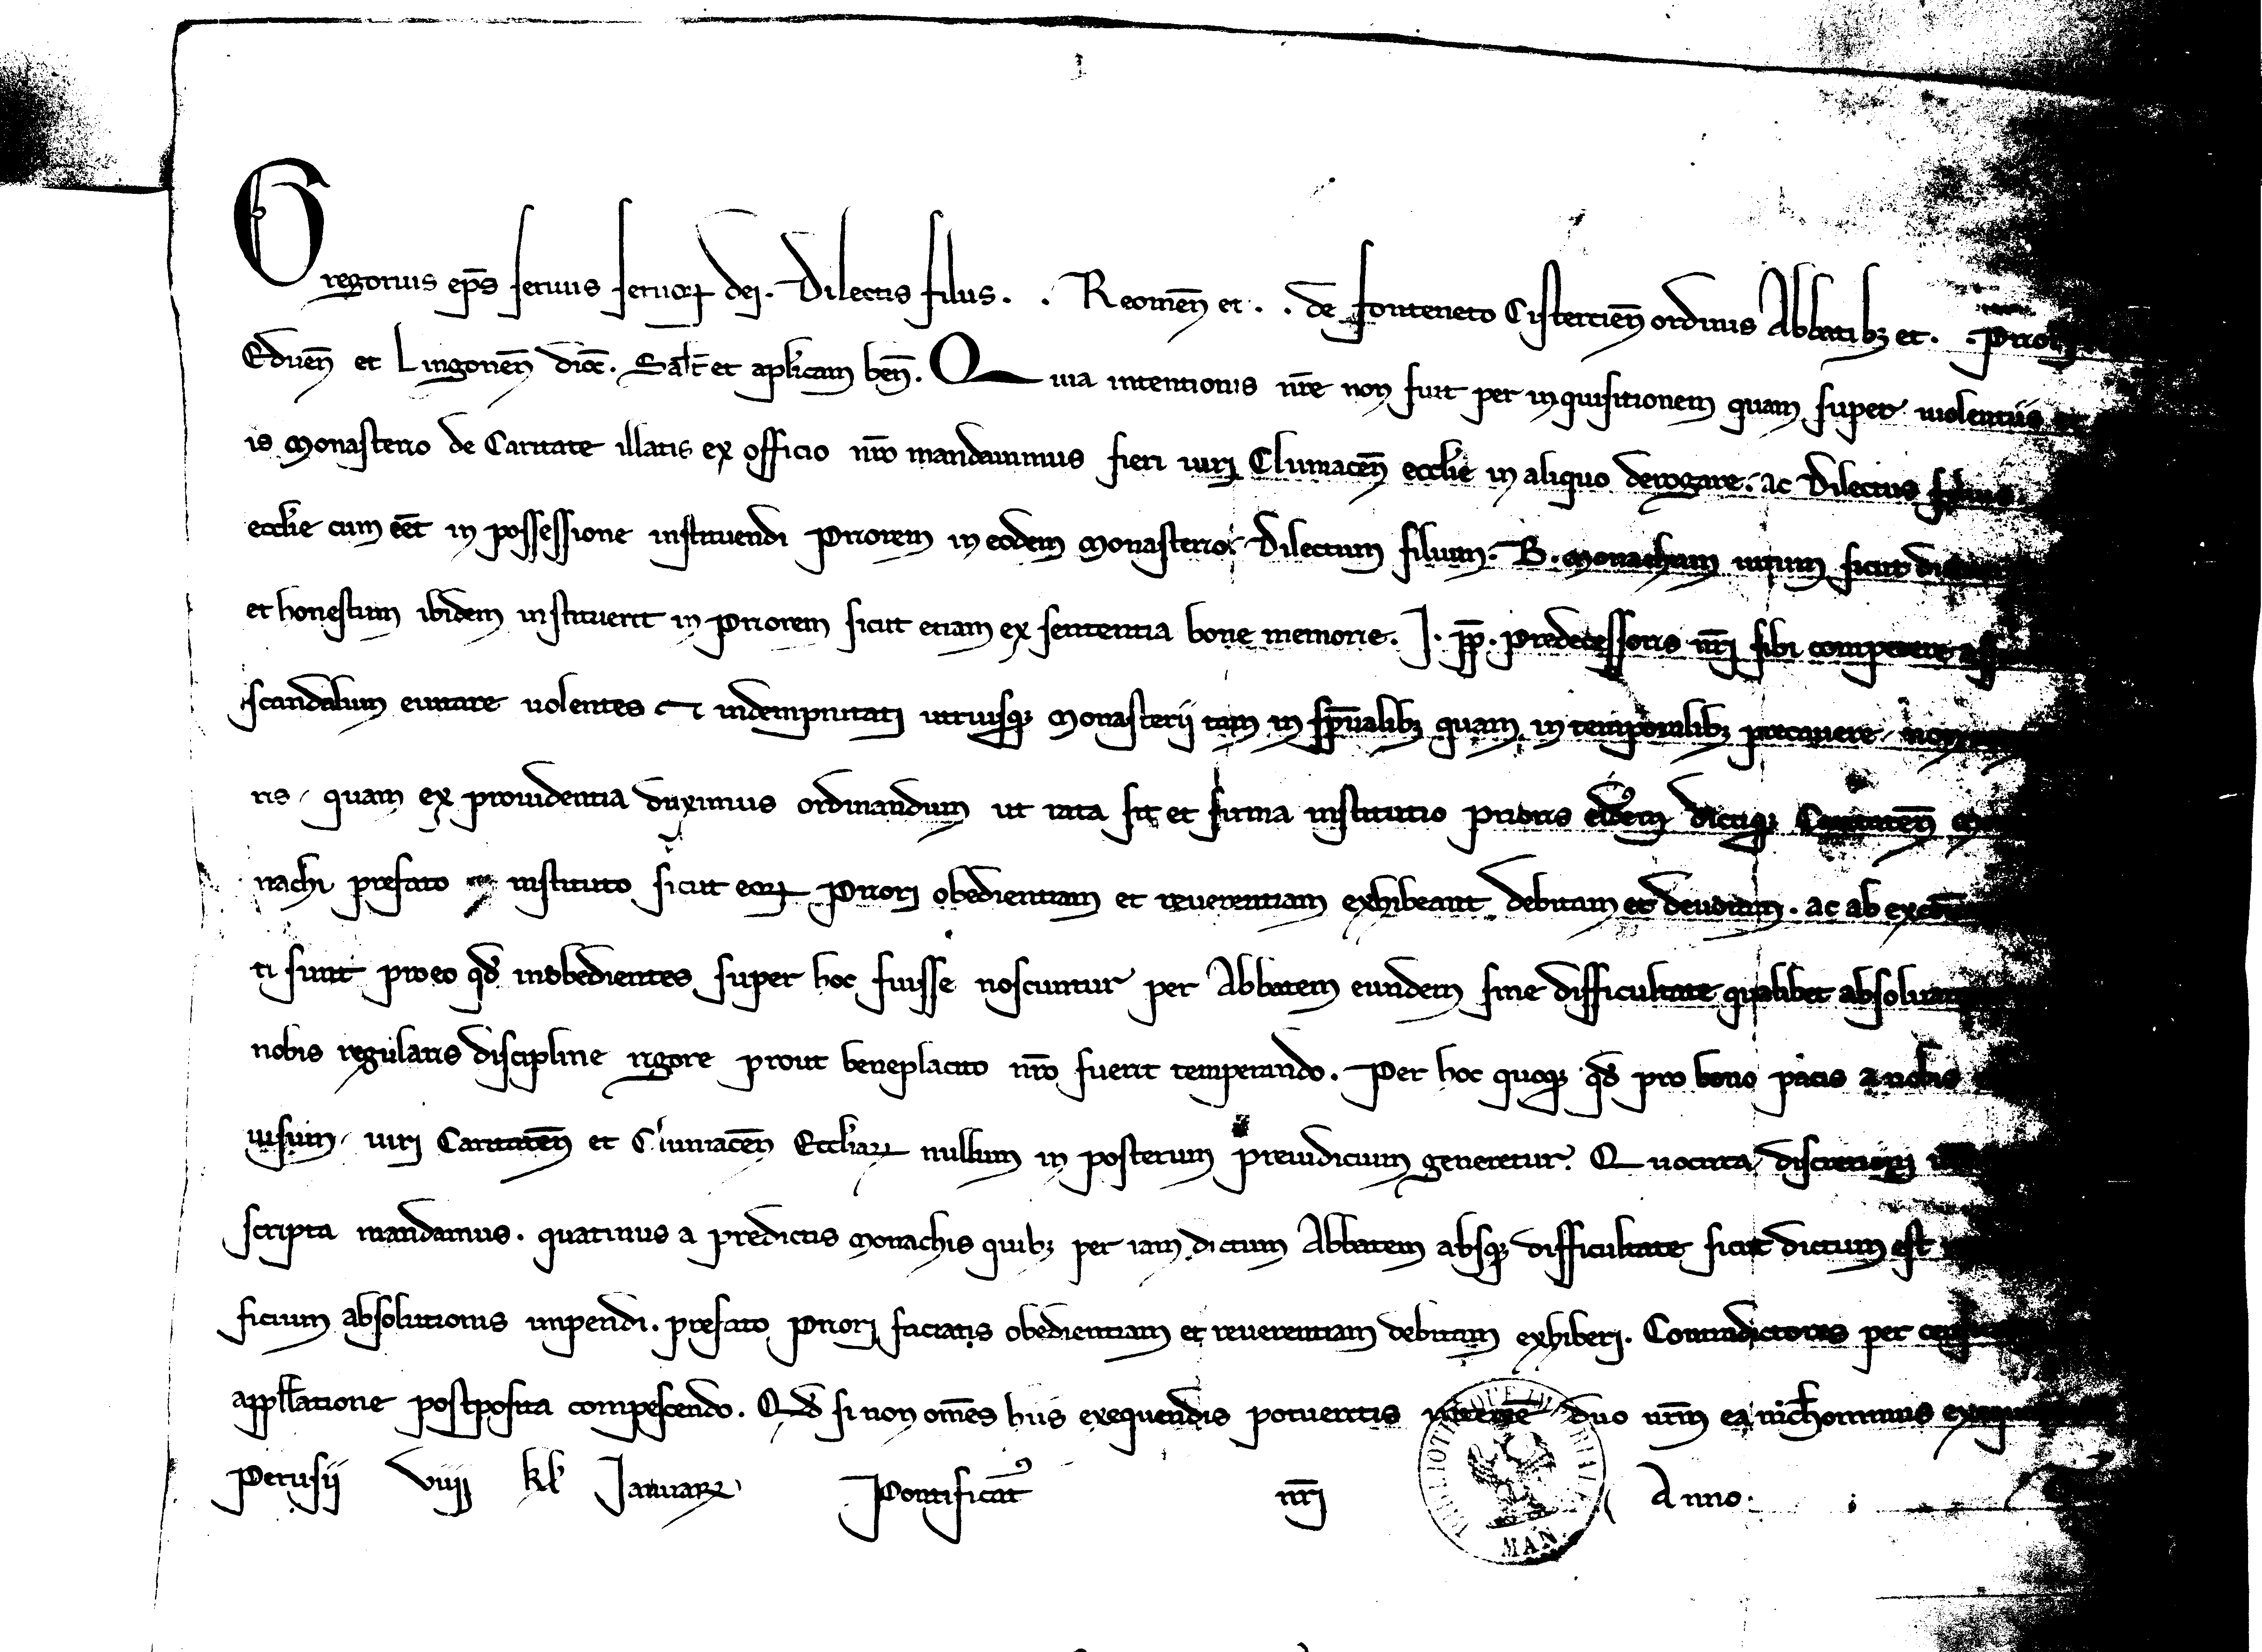 Gregorius ep̄s seruus seruoꝝ dei. Dilectis filiis. . Reomen̄ et . . de fonteneto Cistercien̄ ordinis Abbatibꝫ et . . Priori
Eduen̄ et Lingonen̄ dioc̄. Sal̄t et aplicam ben̄. Quia intentionis nr̄e non fuit per inquisitionem quam super uiolentiis et
is monasterio de Caritate illatis ex officio nr̄o mandauimus fieri iuri Cluniacen̄ ecclie in aliquo derogare. ac Dilectus filius
ecclie cum eēt in possessione instituendi Priorem in eodem monasterio. Dilectum filium. B. monachum uirum sicut
et honestum ibidem instituerit in Priorem sicut etiam ex sententia bone memorie. I. pp̄. predecessoris nr̄i sibi competere
scandalum euitare uolentes et indempnitati utriusqꝫ monasterij tam in sp̄ualibꝫ quam in temporalibꝫ precauere non
ris quam ex prouidentia duximus ordinandum ut rata sit et firma institutio prioris eiusdem dictiqꝫ Caritaten̄
nachi prefato instituto sicut eoꝝ Priori obedientiam et reuerentiam exhibeant debitam et deuotam. ac ab
ti sunt pro eo qd̄ inobedientes super hoc fuisse noscuntur per Abbatem eundem sine difficultate qualibet
nobis regularis discipline rigore prout beneplacito nr̄o fuerit temperando. Per hoc quoqꝫ qd̄ pro bono pacis a nobis
uisum iuri Caritaten̄ et Cluniacen̄ Eccliaꝝ nullum in posterum preiudicium generetur. Quocirca discretioni
scripta mandamus. quatinus a predictis monachis quibꝫ per iam dictum Abbatem absqꝫ difficultate sicut dictum est
ficium absolutionis impendi. prefato Priori faciatis obedientiam et reuerentiam debitam exhiberi. Contradictores per
appll̄atione postposita compescendo. Qd̄ si non om̄es hiis exequendis potueritis interesse duo ur̄m ea nichominus
Perusij viiij kl̄ Januaꝝ Pontificat̄ nr̄i Anno
BIBLIOTHEQUE IMPERIALE MAN.